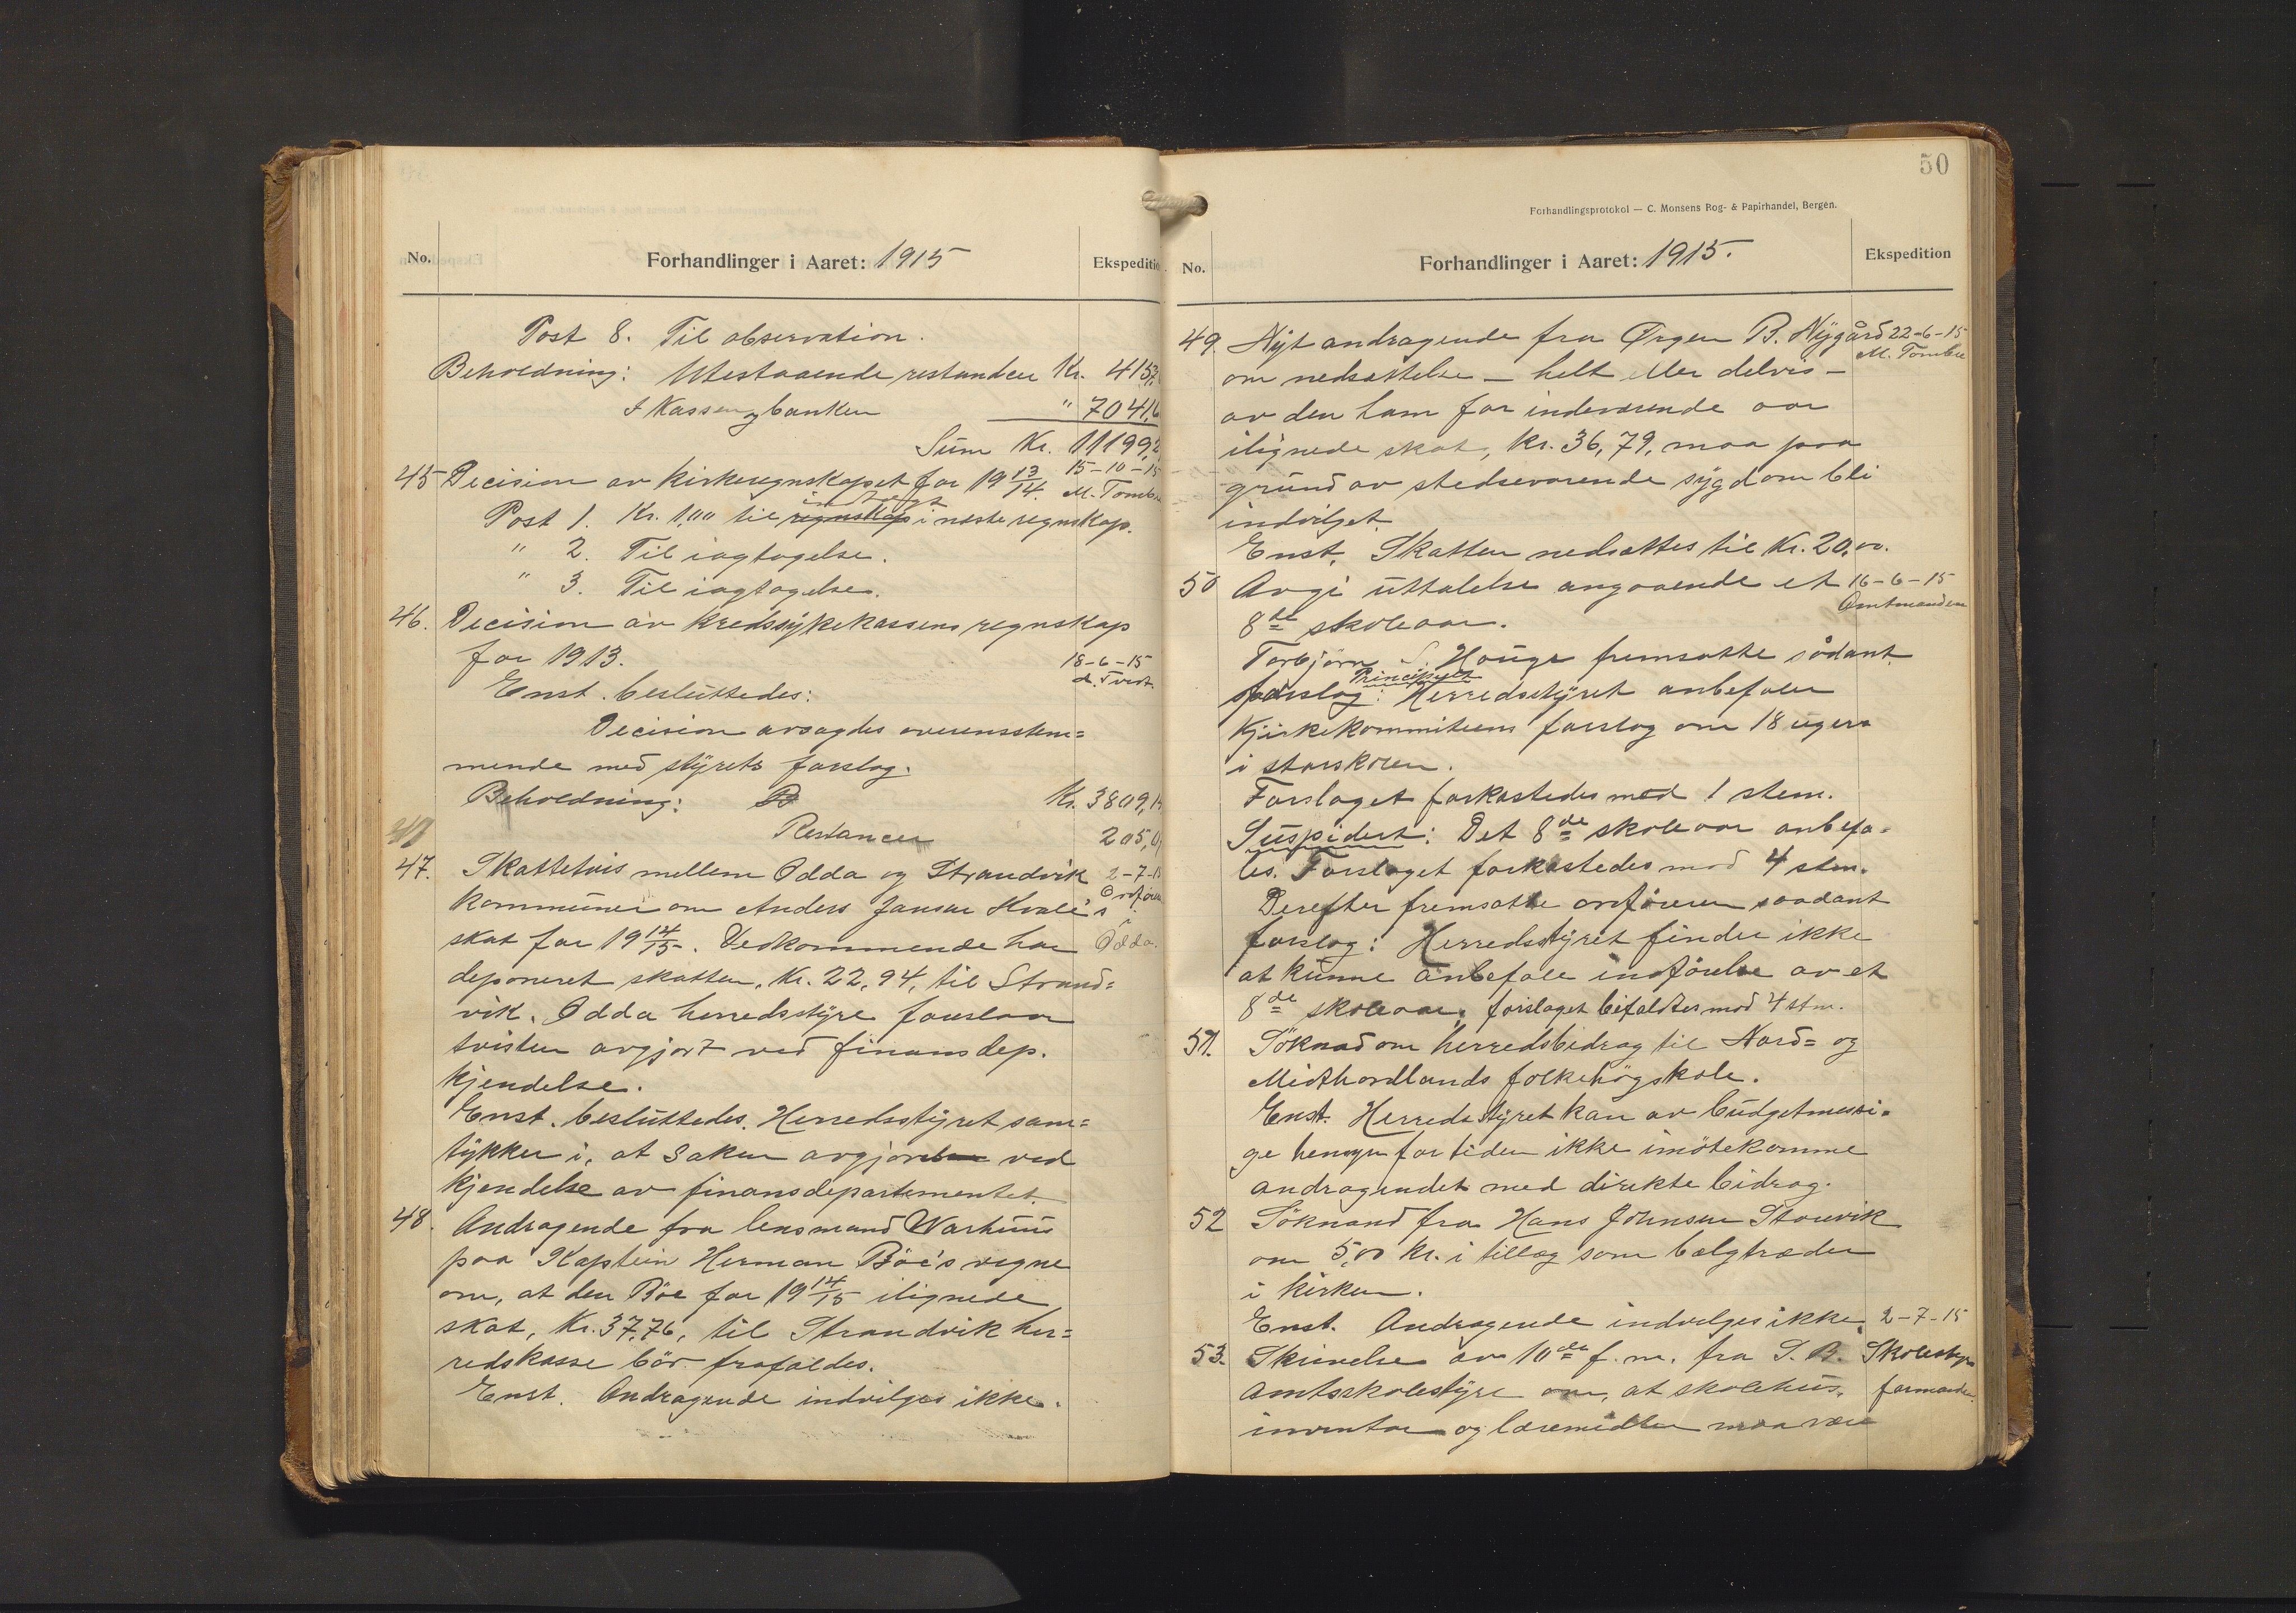 No.
Forhandlinger i Aaret: 1915
Ekspeditio
Post 8. Til observation.
Beholdning: Utestaaende restancer Kr. 415
I Kassen og banken " 7041,6
Sum Kr. 11199,2
45 Decision av kirkeregnskapet for 19 13/14. 15-10-15
M. Tombre
Post 1. Kr. 1,00 til regnskap i næste regnskap.
" 2. Til iagtagelse.
" 3. Til iagtagelse.
46. Decision av kredssykekassens regnskap
for 1913. 18-6-15
Enst. besluttedes:
Decision avsagdes overensstem=
mende med styrets forslag.
Beholdning: Kr. 3809,1
Restancer 205,0
47. Skattetvis mellem Odda og Strandvik 2-7-15
kommuner om Anders Jansen Kvale's Ordfører
skat for 19 14/15. Vedkommende har i Odda.
deponeret skatten, Kr. 22,94, til Strand=
vik. Odda herredsstyre foreslaar
tvisten avgjort ved finansdep.
kjendelse.
Enst. besluttedes. Herredsstyret sam=
tykker i, at saken avgjøres ved
kjendelse av finansdepartementet.
48. Andragende fra lensmand Warhuus
paa Kaptein Herman Böe's vegne
om, at den Böe for 19 14/15 ilignede
skat, Kr. 37,76, til Strandvik her=
redskasse bör frafaldes.
Enst. Andragende indvilges ikke.
50
Forhandlingsprotokol — C. Monsens Bog- & Papirhandel, Bergen.
No.
Forhandlinger i Aaret: 1915.
Ekspedition
49. Nyt andragende fra Ørgen B. Nygård 22-6-15
M. Tombre
om nedsættelse – helt eller delvis –
av den ham for indeværende aar
ilignede skat, kr. 36,79, maa paa
grund av stedsevarende sygdom bli
indvilget.
Enst. Skatten nedsættes til Kr. 20,00.
50 Avgi uttalelse angaaende et 16-6-15
Amtmanden
8de skoleaar.
Torbjörn S. Hauge fremsatte sådant
Principielt
forslag: Herredsstyret anbefaler
Kjirkekommiteens forslag om 18 ugers
i storskolen.
Forslaget forkastedes mod 1 stem.
Suspidert: Det 8de skoleaar anbefa=
les. Forslaget forkastedes mod 4 stem.
Derefter fremsatte ordføreren saadant
forslag: Herredsstyret finder ikke
at kunne anbefale indførelse av et
8de skoleaar, forslaget bifaldtes mod 4 stm.
51. Söknad om herredsbidrag til Nord= og
Midthordlands folkehögskole.
Enst. Herredsstyret kan av budgetmessi=
ge hensyn for tiden ikke imötekomme
andragendet med direkte bidrag.
52 Söknand fra Hans Johnsen Stouvik
om 5,00 kr. i tillæg som bælgtræder
i kirken.
Enst. Andragende indvilges ikke. 2-7-15
53. Skrivelse av 10de f. m. fra S. B. Skolestyr
Amtsskolestyre om, at skolehus, formanden
inventar og læremidler maa være